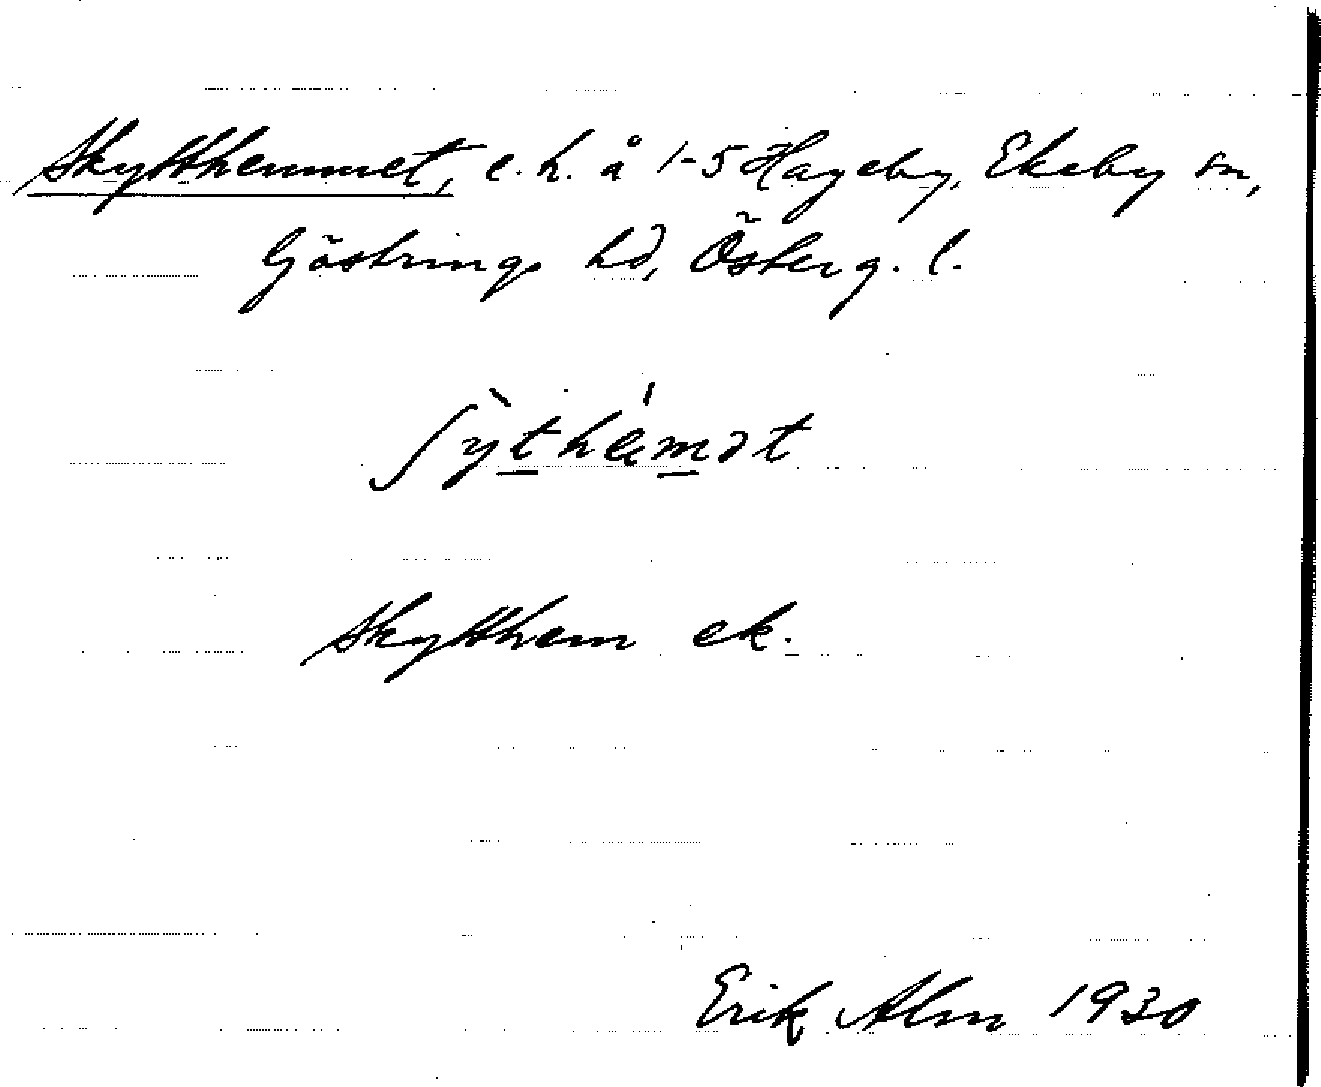 Skytthemmet, l.h. å 1-5 Hageby, Ekeby sn,
Göstrings hd, Österg. l.
ʃỳthémət
Skytthem ek.
Erik Alm 1930